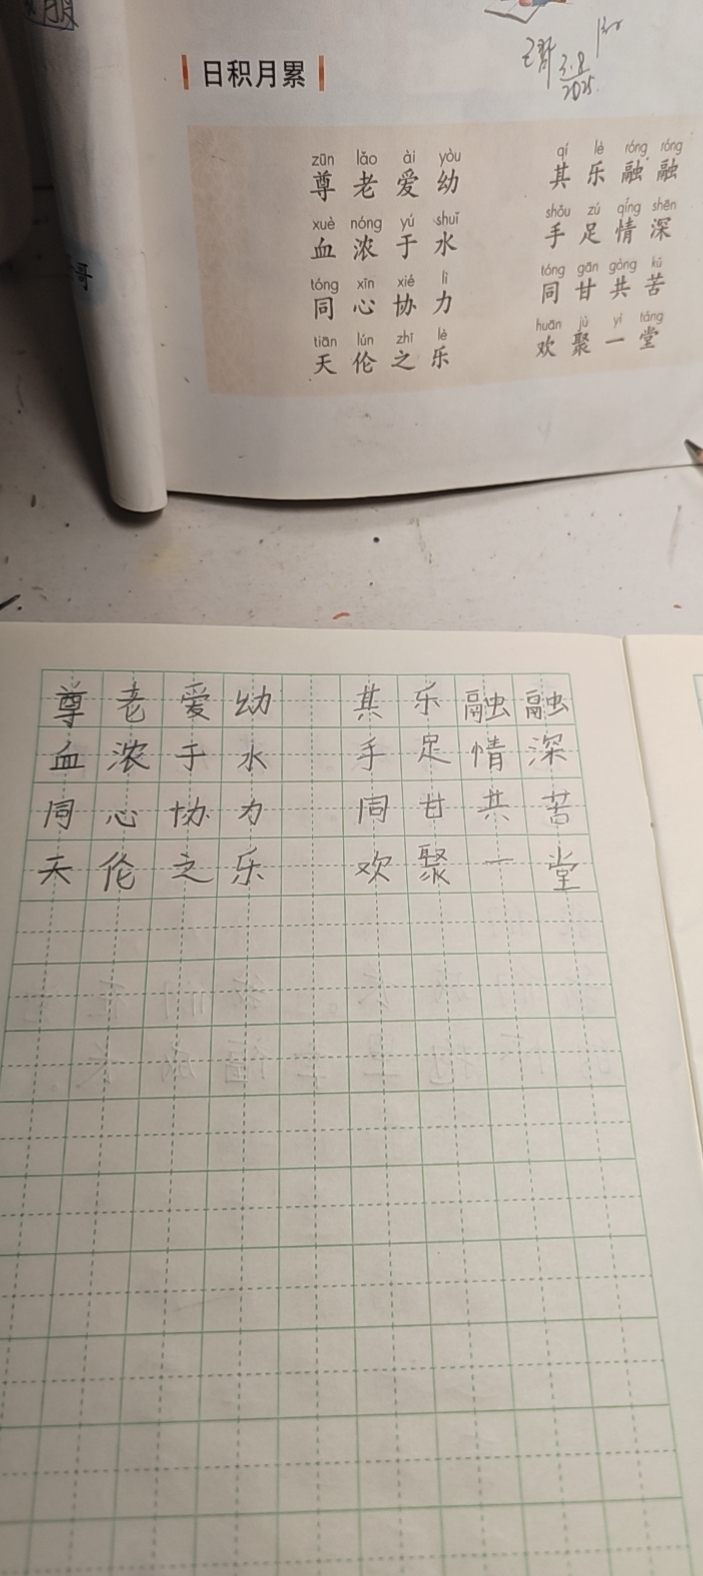 日积月累
2025
zūn lǎo ài yòu qí lè róng róng
尊老爱幼 其乐融融
xuè nóng yú shuǐ shǒu zú qíng shēn
血浓于水 手足情深
tóng xīn xié lì tóng gān gòng kǔ
同心协力 同甘共苦
tiān lún zhī lè huān jù yì táng
天伦之乐 欢聚一堂
哥
尊老爱幼 其乐融融
血浓于水 手足情深
同心协力 同甘共苦
天伦之乐 欢聚一堂